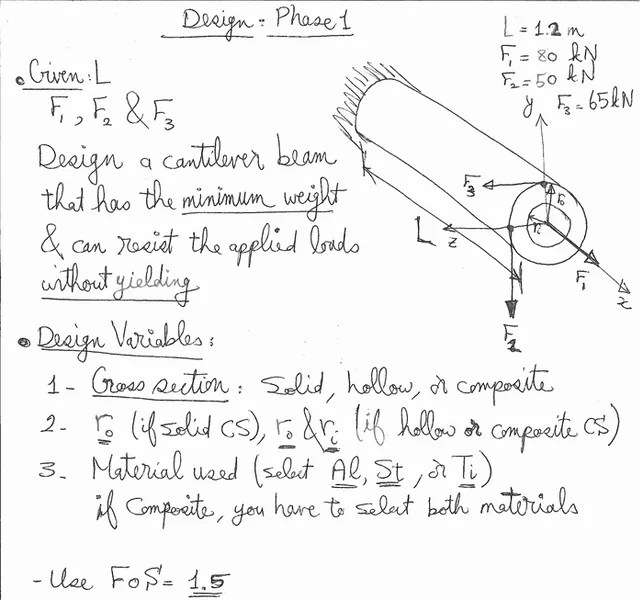 Design: Phase 1
L = 1.2 m
F1 = 80 kN
F2 = 50 kN
F3 = 65 kN
• Given: L
F1, F2 & F3
Design a cantilever beam
that has the minimum weight
& can resist the applied loads
without yielding
y
F3
ro
ri
L
z
F1
x
F2
• Design Variables:
1- Cross section: Solid, hollow, or composite
2- ro (if solid CS), ro & ri (if hollow or composite CS)
3- Material used (select Al, St, or Ti)
if Composite, you have to select both materials
- Use FoS = 1.5